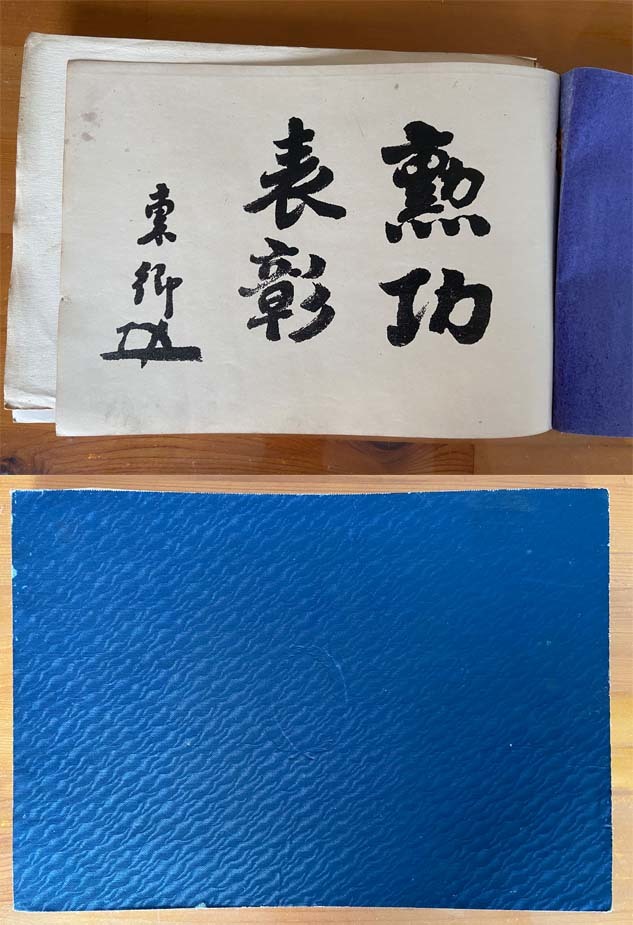 勲功
表彰
東郷